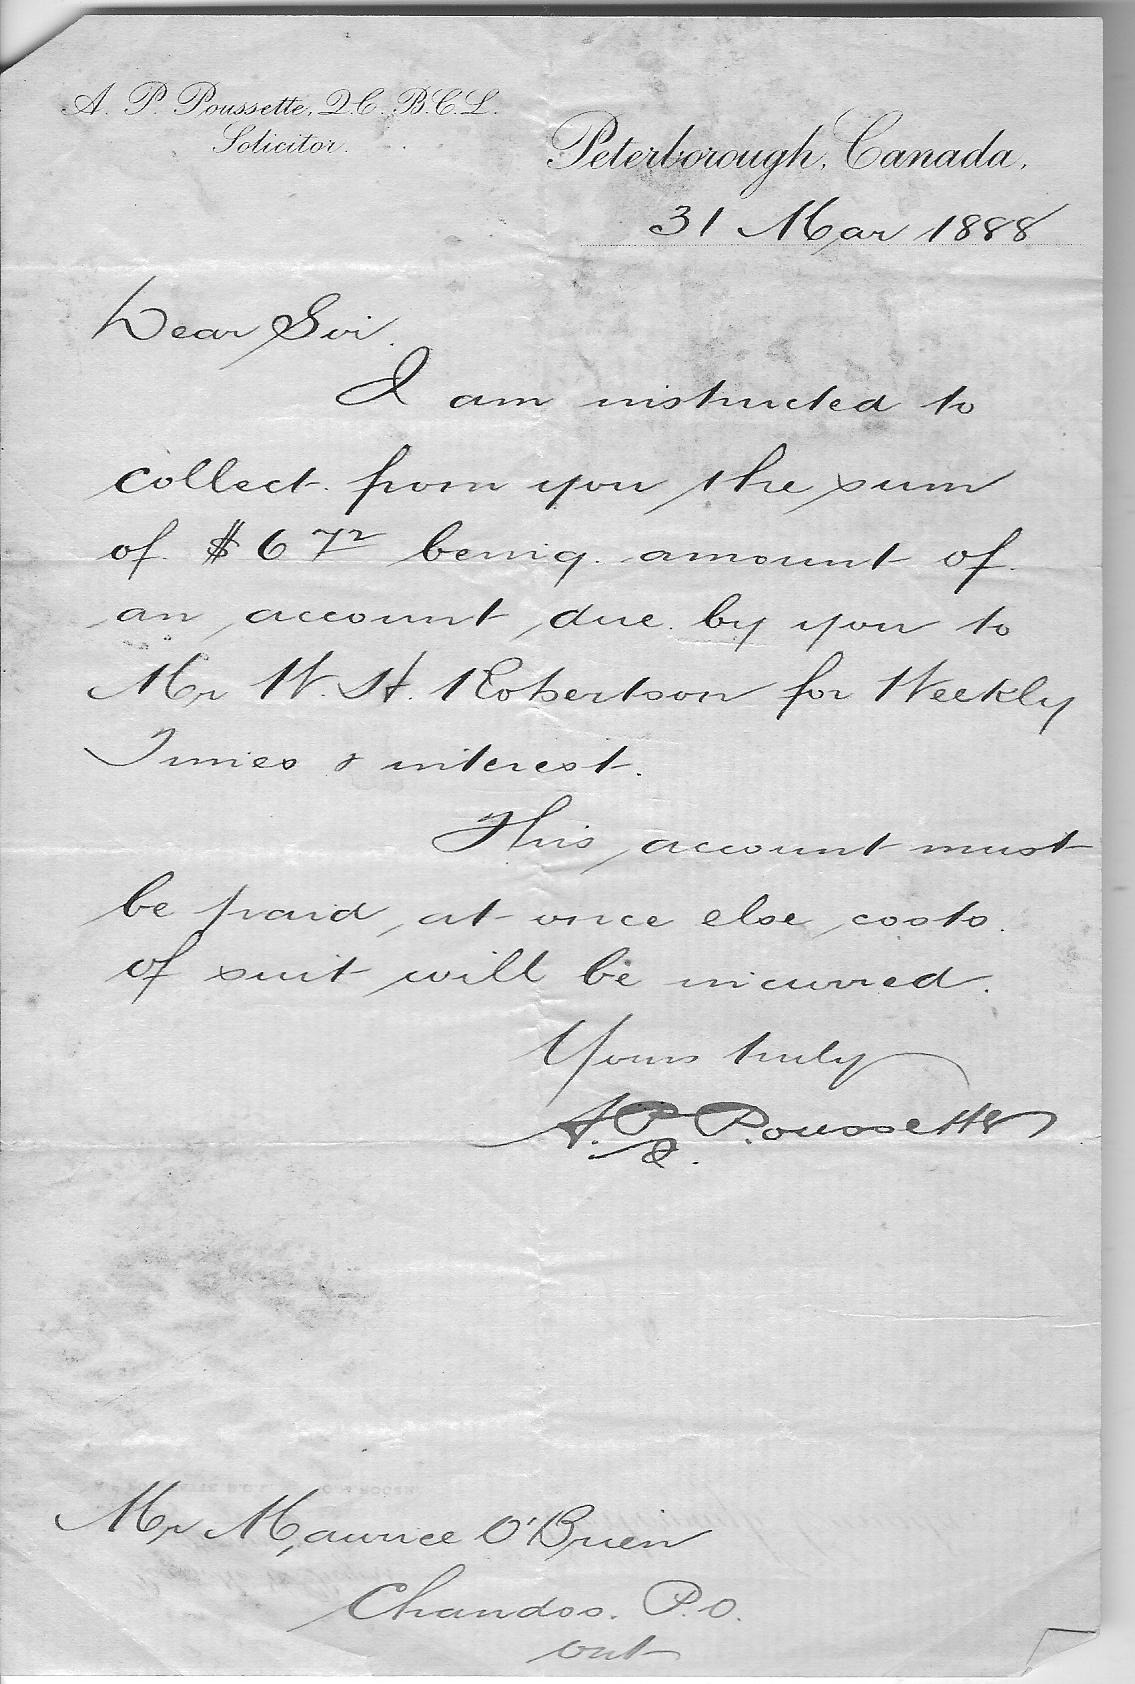 A. P. Poussette, Q.C. B.C.L.
Solicitor.
Peterborough, Canada,
31 Mar 1888
Dear Sir.
I am instructed to
collect from you the sum
of $6 72 being amount of
an account due by you to
Mr W. H. Robertson for Weekly
Times & interest.
This account must
be paid at once else costs
of suit will be incurred.
Yours truly
A. P. Poussette
Mr Maurice O'Brien
Chandos. P.O.
Ont